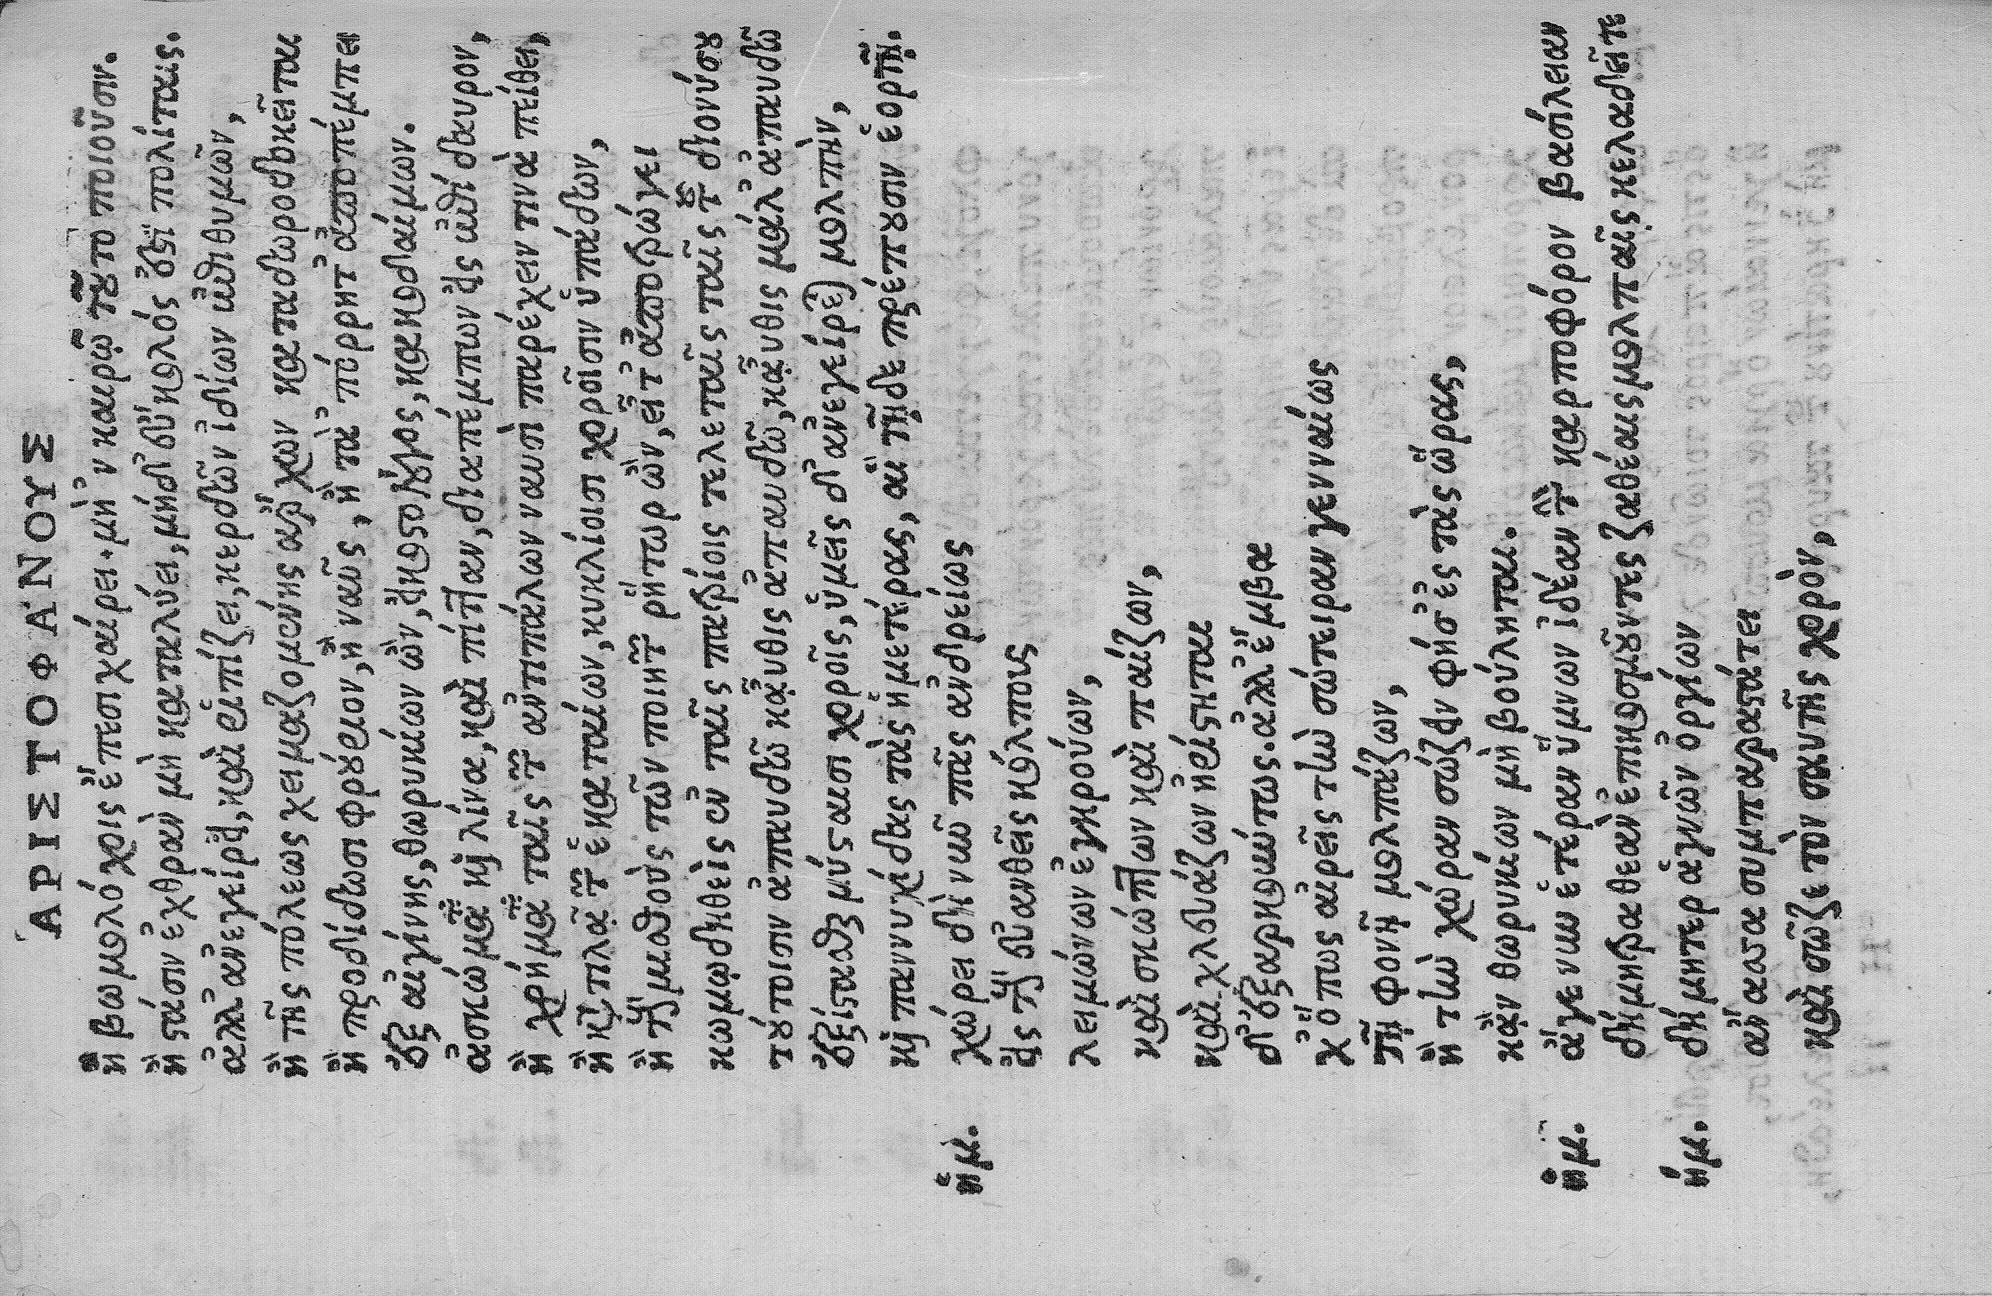 ἈΡΙΣΤΟΦΆΝΟΥΣ
ἢ βωμολόχοις ἔπεσι χαίρει. μὴ 'ν καιρῷ τοῦτο ποιοῦσιν.
ἢ στάσιν ἐχθρὰν μὴ καταλύει, μηδ' εὔκολός ἐστι πολίταις.
ἀλλ' ἀνεγείρει, καὶ ῥιπίζει, κερδῶν ἰδίων ἐπιθυμῶν,
ἢ τῆς πόλεως χειμαζομένης ἄρχων καταδωροδοκεῖται
ἢ προδίδωσι φρούριον, ἢ ναῦς, ἢ τὰ πόρρητ' ἀποπέμπει
ἐξ αἰγίνης, θωρυκίων ὢν, εἰκοστολόγος, κακοδαίμων.
ἀσκώματα καὶ λίνα, καὶ πίτταν, διαπέμπων εἰς ἐπίδαυρον,
ἢ χρήματα ταῖς τῶν ἀντιπάλων ναυσὶ παρέχειν τινὰ πείθει,
ἢ κατατιλᾷ τῶν ἑκαταίων, κυκλίοισι χοροῖσιν ὑπάδων,
ἢ τοὺς μισθοὺς τῶν ποιητῶν ῥήτωρ ὢν, εἶτ' ἀποτρώγει
κωμῳδηθεὶς ἐν ταῖς πατρίοις τελεταῖς ταῖς τοῦ διονύσου
τούτοισιν ἀπαυδῶ καὖθις ἀπαυδῶ, καὖθις μάλ' ἀπαυδῶ
ἐξίστασθαι μύσταισι χοροῖς, ὑμεῖς δ' ἀνεγείρετε μολπὴν,
καὶ παννυχίδας τὰς ἡμετέρας, αἳ τῇδε πρέπουσιν ἑορτῇ.
ἡμ. χώρει δὴ νῦν πᾶς ἀνδρείως
εἰς τοὺς εὐανθεῖς κόλπους
λειμώνων ἐγκρούων,
καὶ σκώπτων καὶ παίζων,
καὶ χλευάζων ἠρίστηται
δ' ἐξαρκούντως. ἀλλ' ἔμβα
χ' ὅπως αἱρεῖς τὴν σώτειραν γενναίως
τῇ φωνῇ μολπάζων,
ἣ τὴν χώραν σώζειν φήσ' ἐς τὰς ὥρας,
κἂν θωρυκίων μὴ βούληται.
ἡμ. ἄγε νῦν ἑτέραν ὕμνων ἰδέαν τὴν καρποφόρον βασίλειαν
δήμητρα θεὰν ἐπικοσμοῦντες ζαθέαις μολπαῖς κελαδεῖτε
ἡμ. δήμητερ ἁγνῶν ὀργίων
ἄνασσα συμπαραστάτει
καὶ σῶζε τὸν σαυτῆς χορὸν,